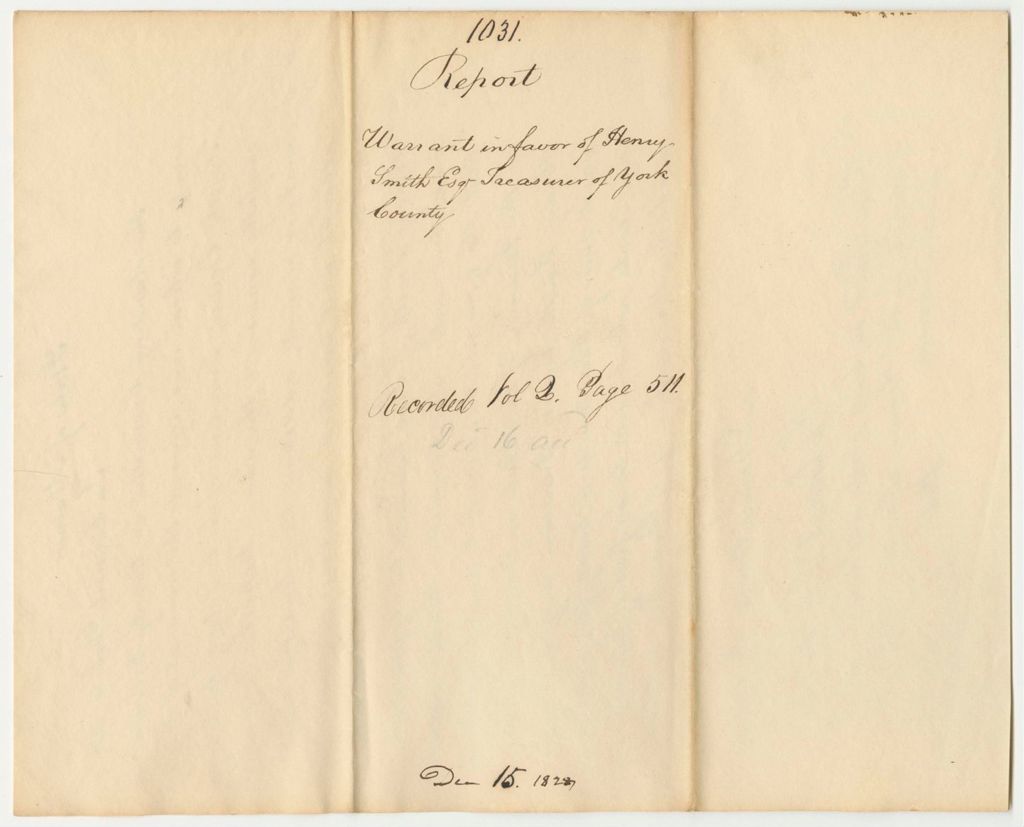 1031.
Report
Warrant in favor of Henry
Smith Esqr Treasurer of York
County
Recorded Vol 2. Page 511.
Dec 16
Dec 15. 1828